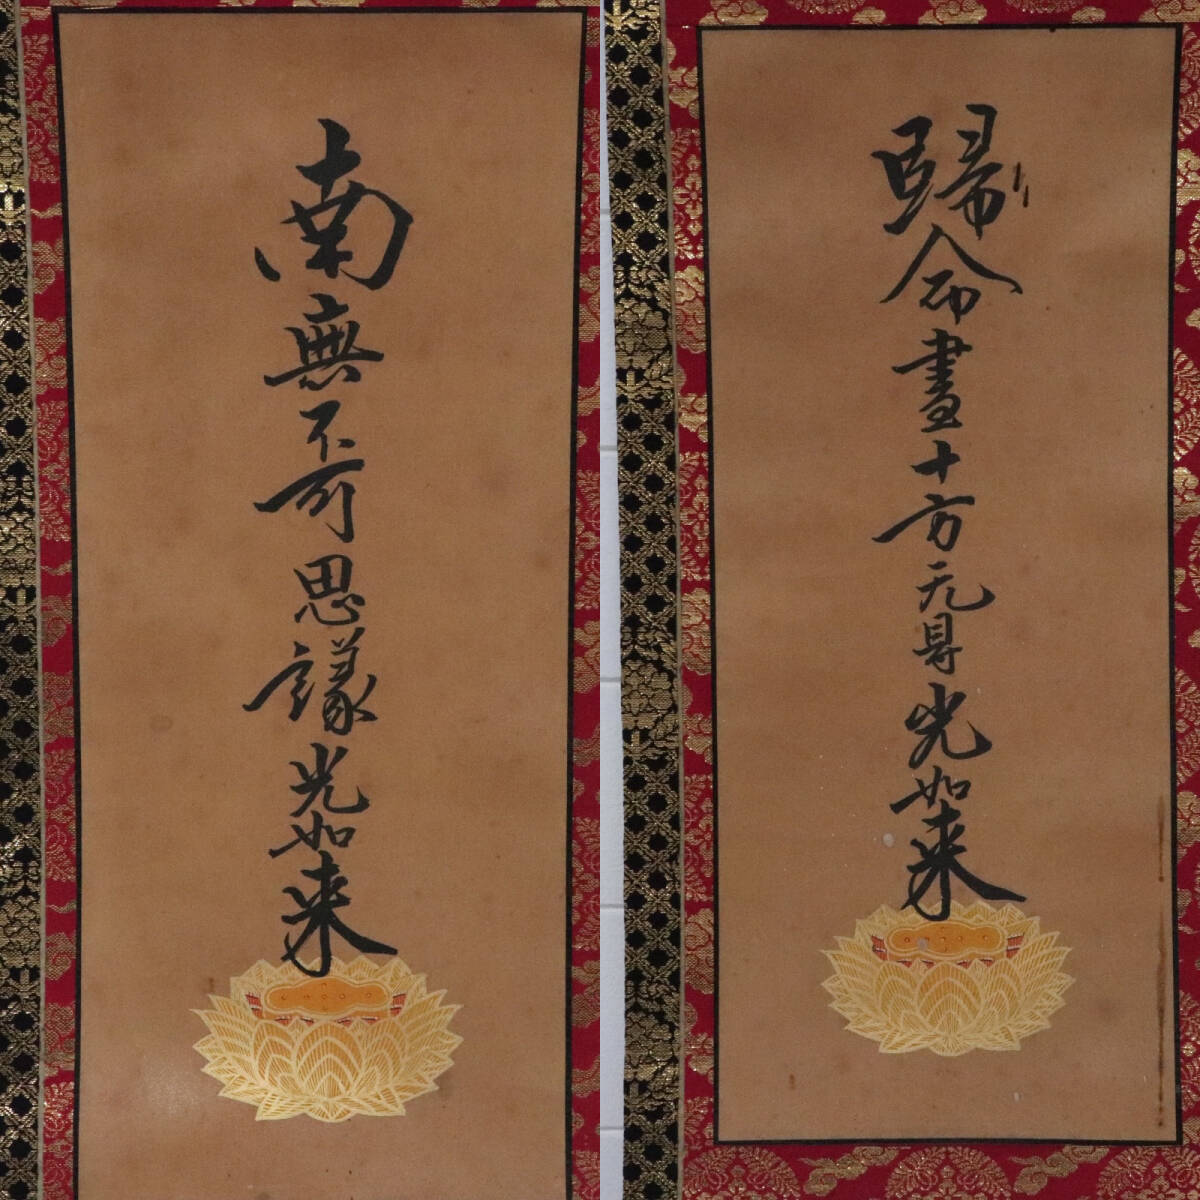 歸命盡十方无㝵光如来
南無不可思議光如来